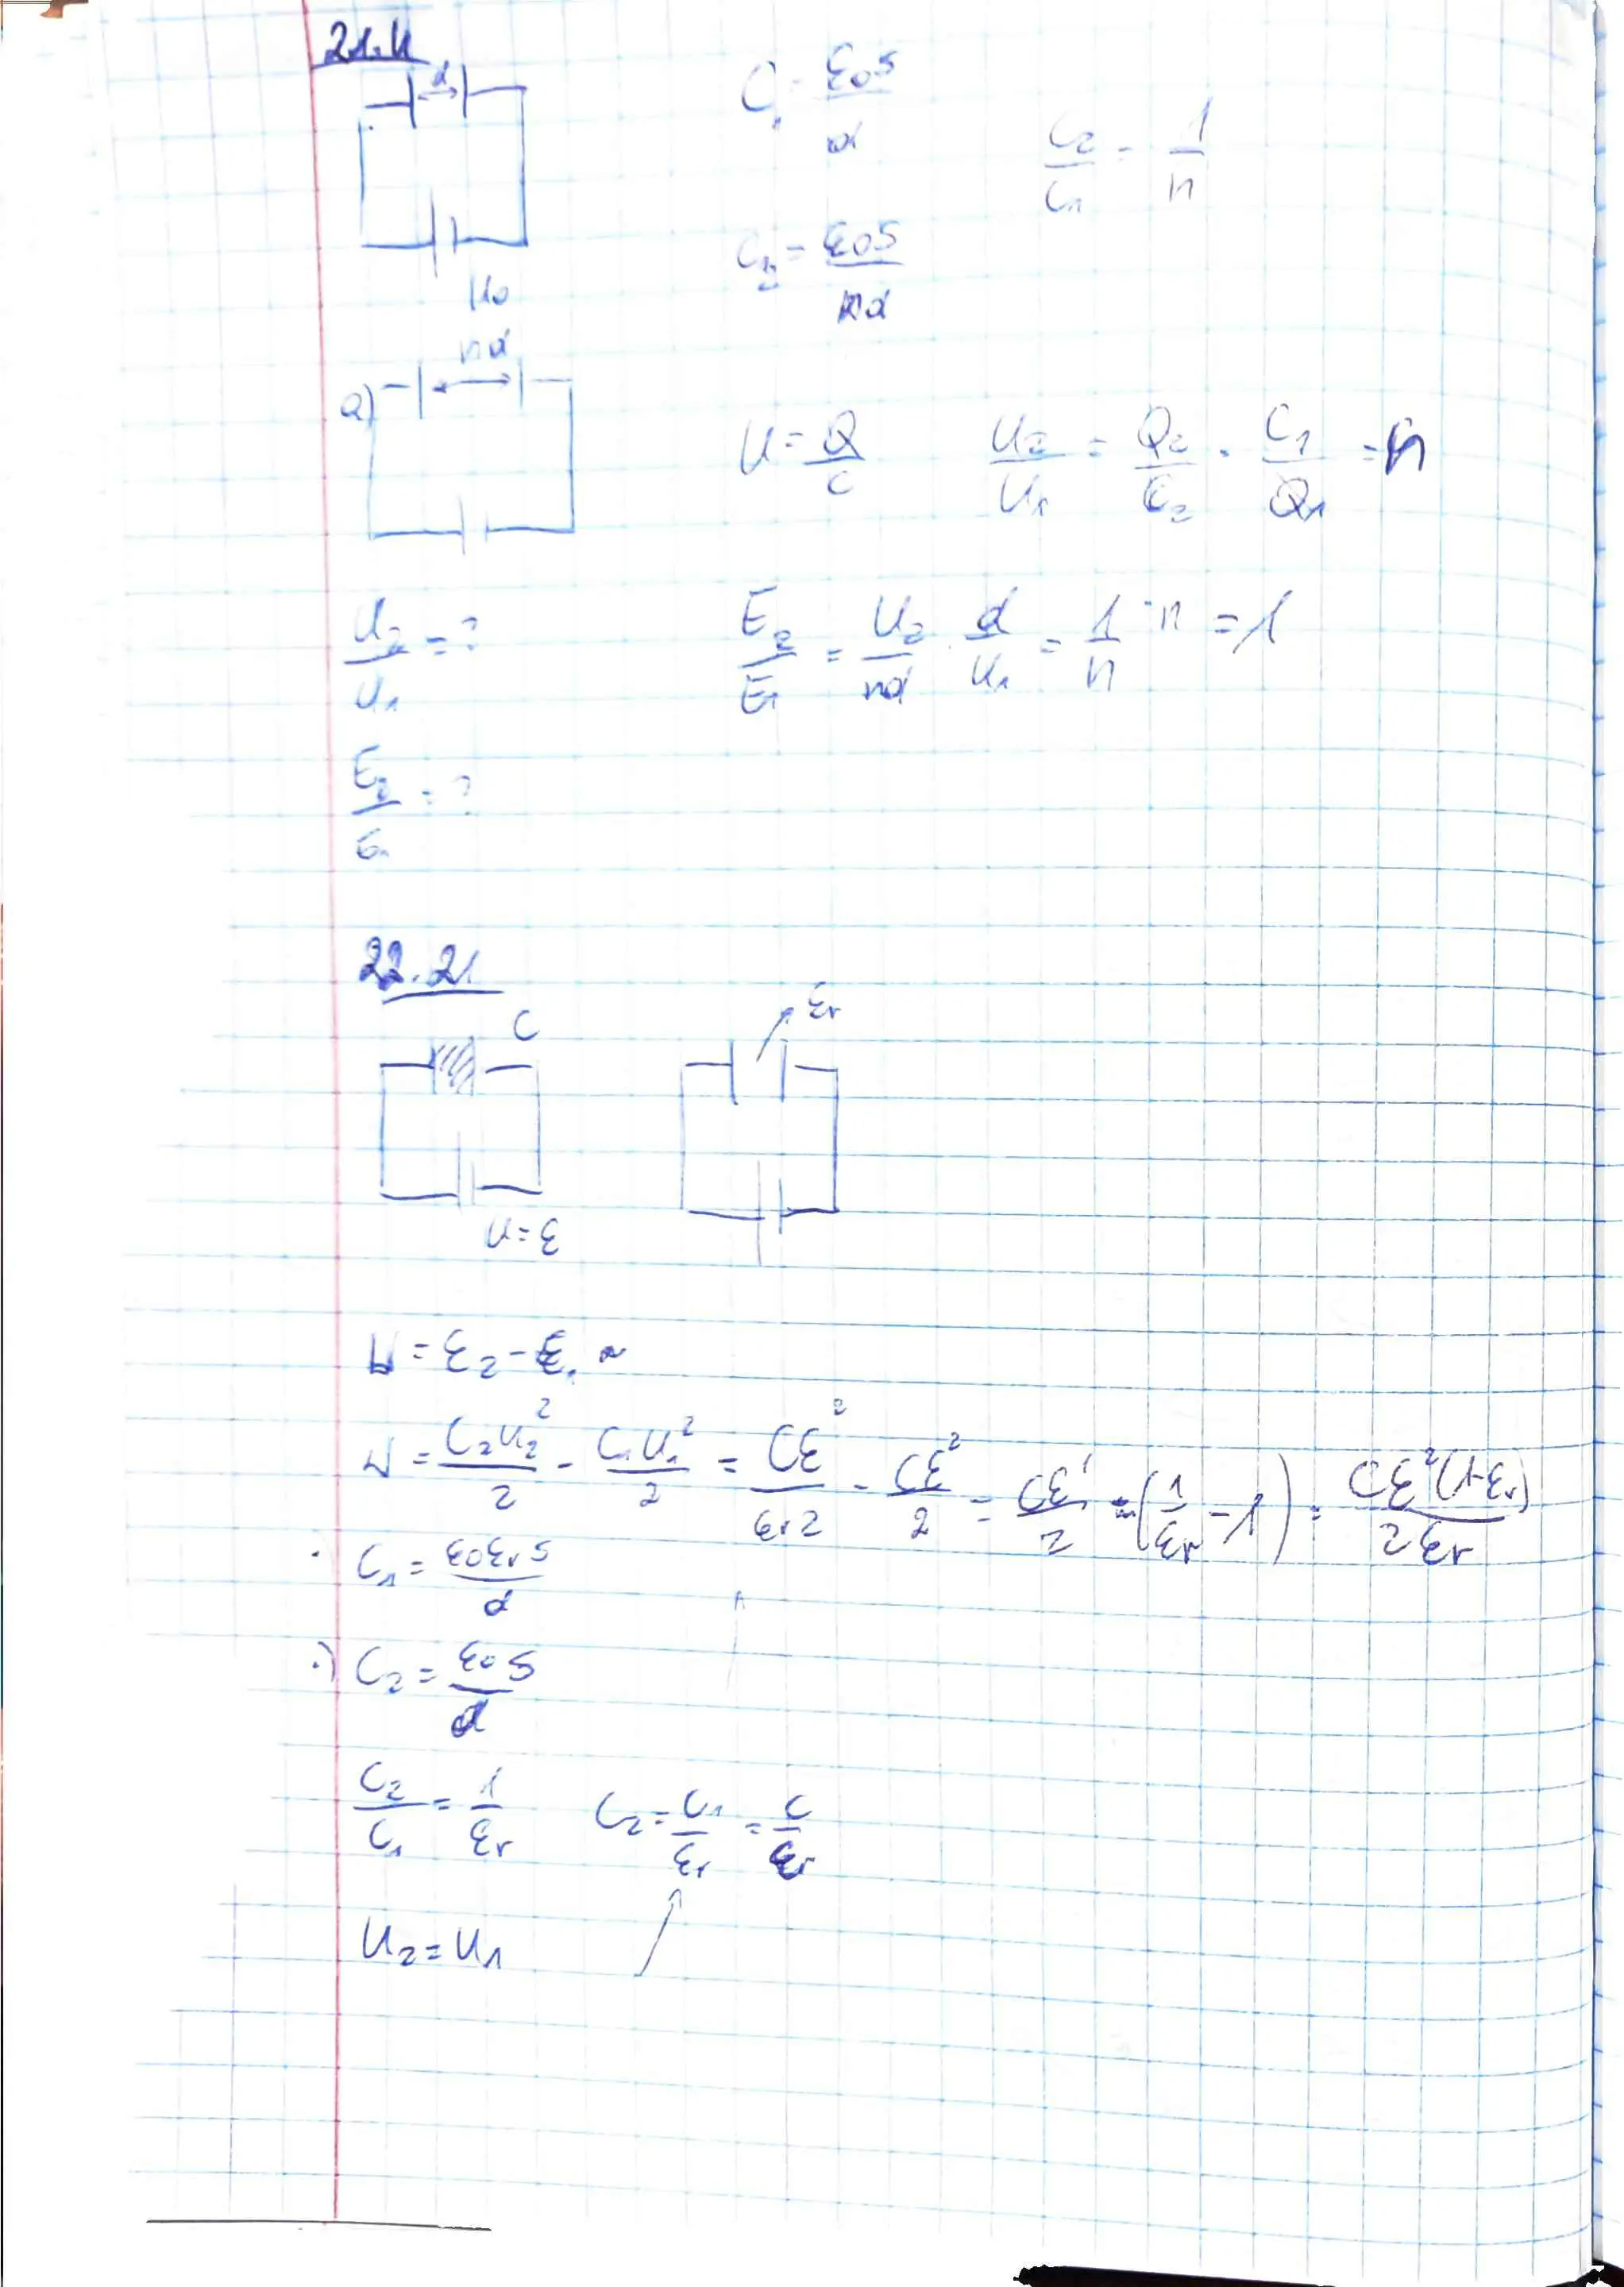 21.4
d
C₁ = ε₀S/d
C₂/C₁ = 1/n
C₂ = ε₀S/nd
U₀
nd
a)
U = Q/C U₂/U₁ = Q₂/C₂ · C₁/Q₁ = n
U₂/U₁ = ?
E₂/E₁ = U₂/nd · d/U₁ = 1/n · n = 1
E₂/E₁ = ?
22.21
C
εr
U = ε
W = ε₂ - ε₁
W = C₂U₂²/2 - C₁U₁²/2 = Cε²/εr2 - Cε²/2 = Cε²/2 = (1/εr - 1) = Cε²(1-εr)/2εr
C₁ = ε₀εrS/d
C₂ = ε₀S/d
C₂/C₁ = 1/εr C₂ = C₁/εr = C/εr
U₂ = U₁